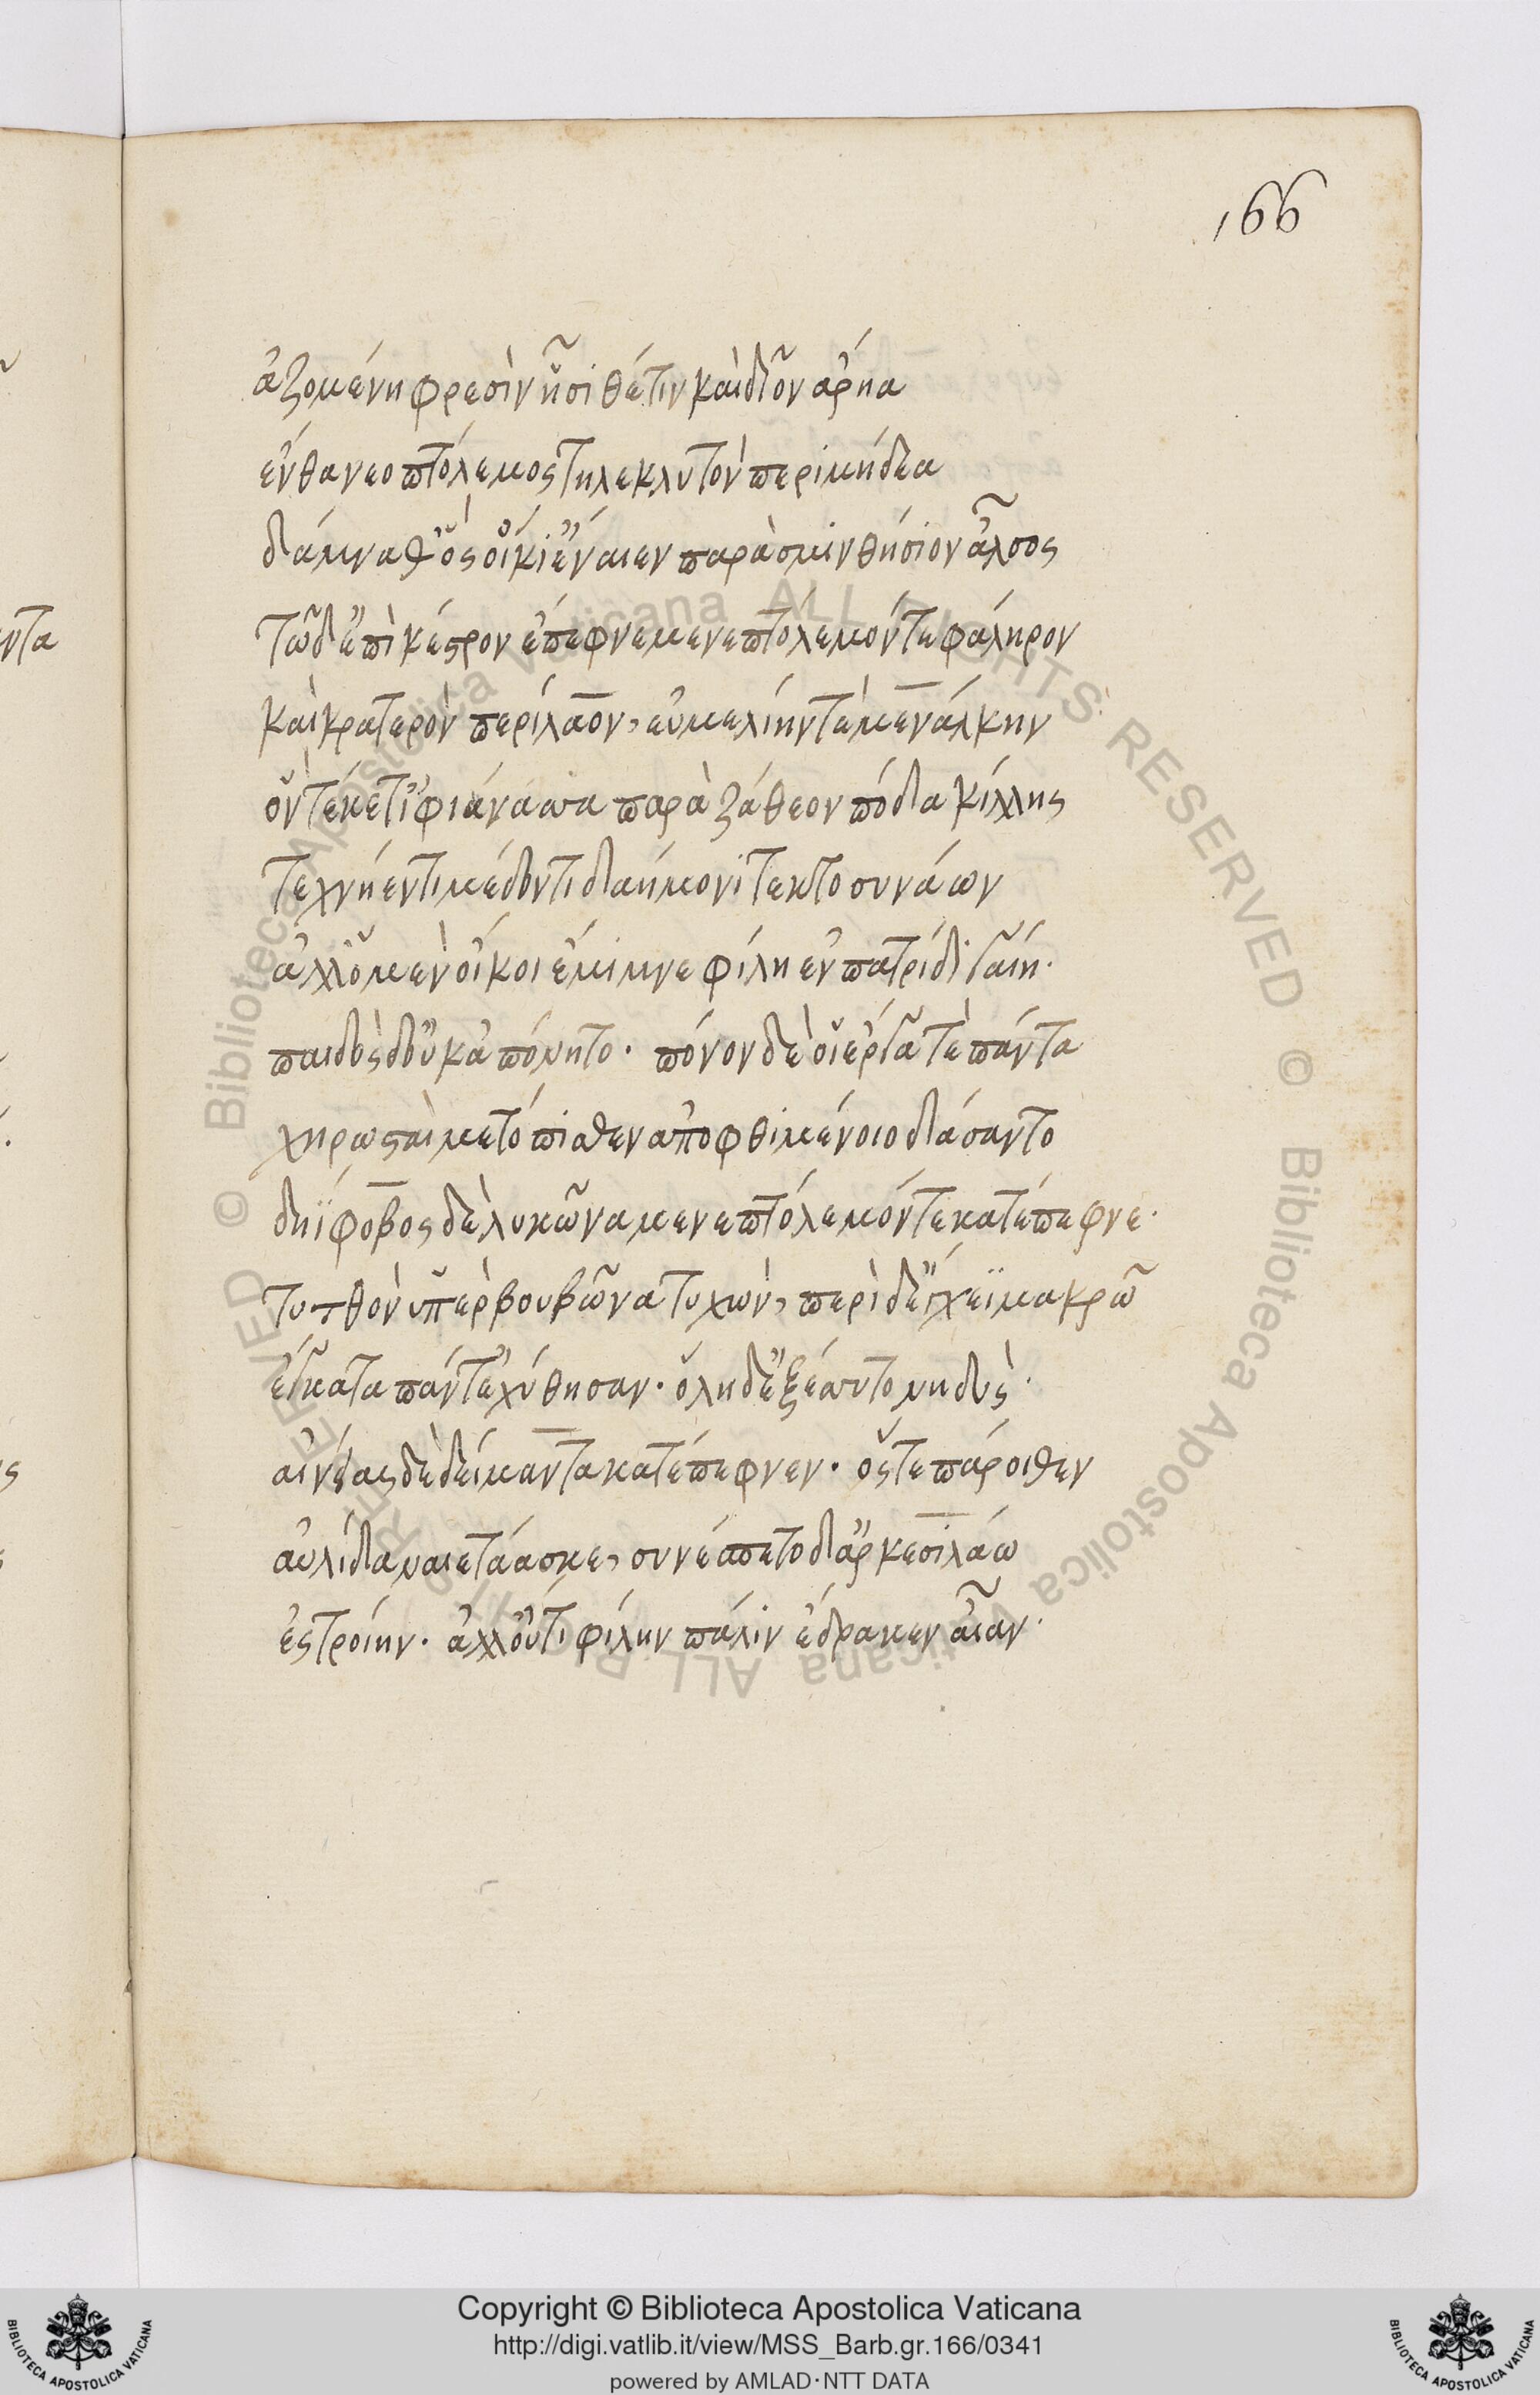 166
ἁζομένη φρεσὶν ᾗσι θέτιν καὶ δῖον ἄρηα
ἔνθα νεοπτόλεμος τηλεκλυτὸν περιμήδεα
δάμναθ' ὅς οἰκί' ἔναιεν παρὰ σμινθήσιον ἄλσος
τῷ δ' ἐπὶ κέστρον ἔπεφνε μενεπτόλεμόν τε φάληρον
καὶ κρατερὸν περίλαον, ἐυμελίην τὲ μενάλκην
ὃν τέκετ' ἰφιάνασσα παρὰ ζάθεον πόδα κίλλης
τεχνήεντι μέδοντι δαήμονι τεκτοσυνάων
ἀλλ' ὁ μὲν οἴκοι ἔμιμνε φίλη ἐν πατρίδι γαίη·
παιδὸς δ' οὐκ ἀπόνητο· πόνον δὲ οἱ ἔργα τὲ πάντα
χηρωσταὶ μετόπισθεν ἀποφθιμένοιο δάσαντο
δηΐφοβος δὲ λυκῶνα μενεπτόλεμόν τε κατέπεφνε·
τυτθὸν ὑπὲρ βουβῶνα τυχών, περὶ δ' ἔγχεϊ μακρῷ
ἔγκατα πάντ' ἐχύθησαν· ὅλη δ' ἐξέσσυτο νηδύς·
αἰνέας δὲ δύμαντα κατέπεφνεν· ὅς τε πάροιθεν
αὐλίδα ναιετάασκε, συνέσπετο δ' ἀρκεσιλάω
ἐς τροίην· ἀλλ' οὔτι φίλην πάλιν ἔδρακεν αἶαν·
Copyright © Biblioteca Apostolica Vaticana
http://digi.vatlib.it/view/MSS_Barb.gr.166/0341
powered by AMLAD·NTT DATA